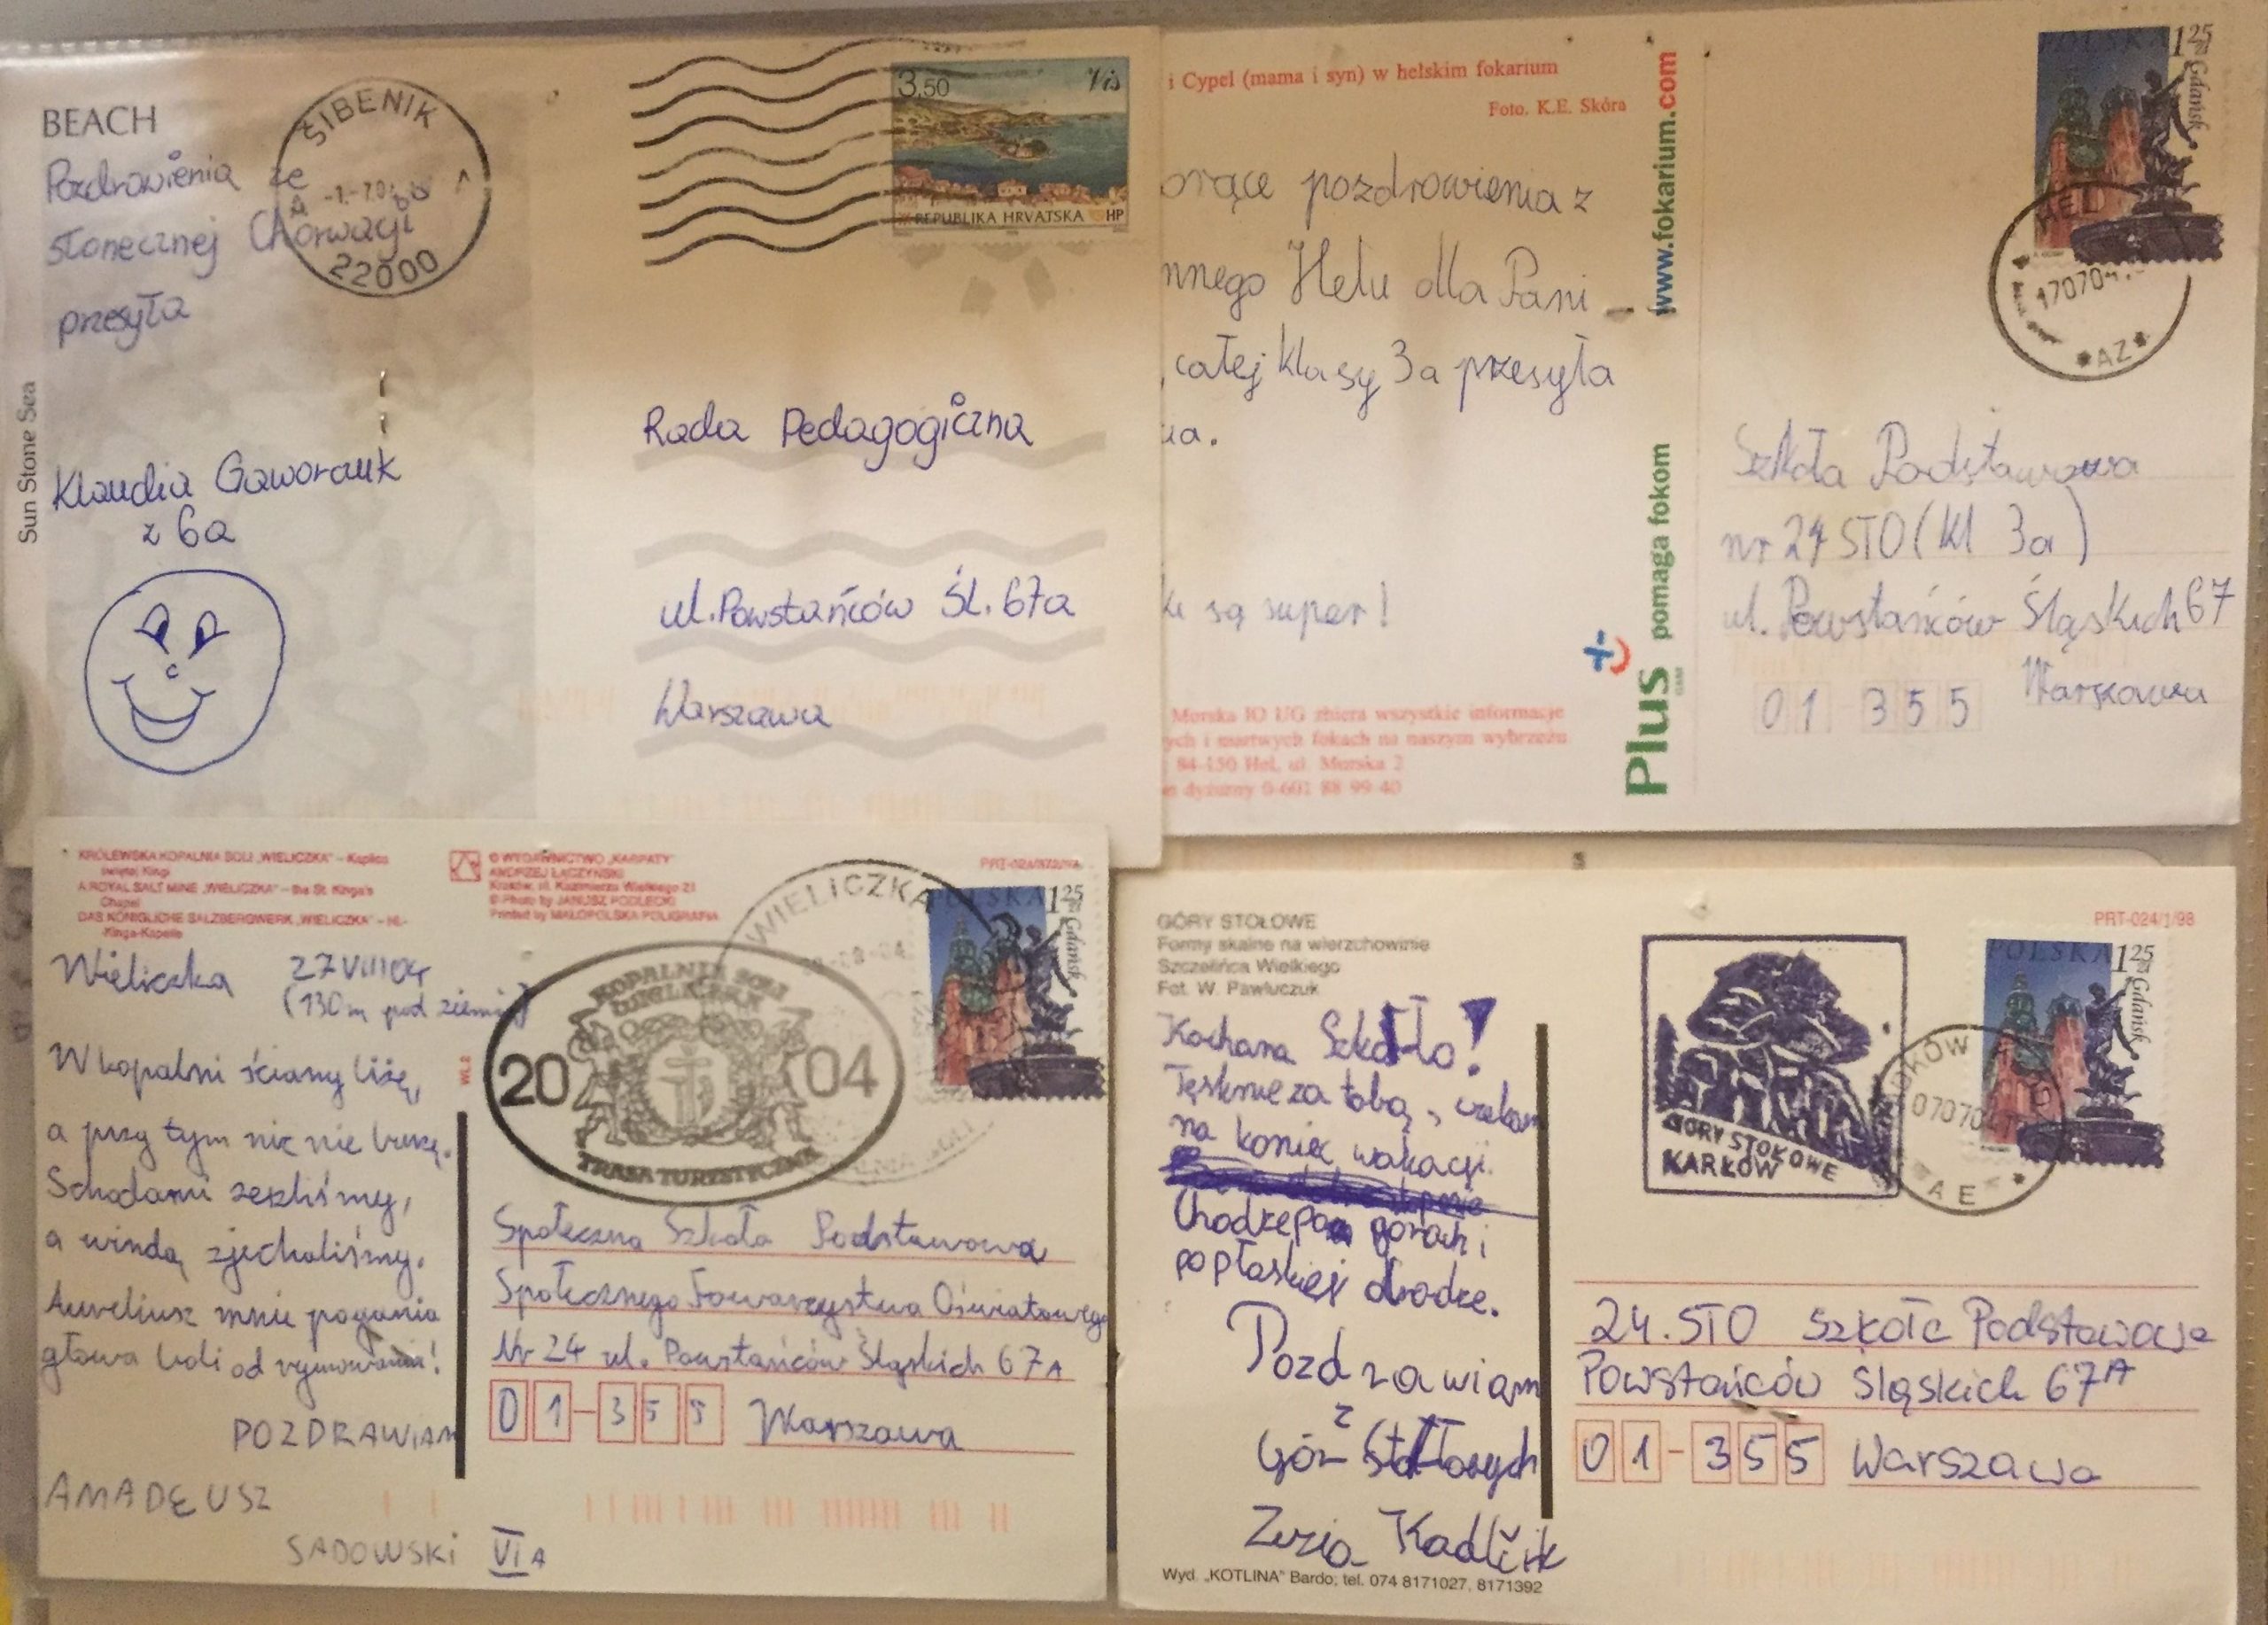 BEACH
Pozdrowienia ze
słonecznej Chorwacji
przesyła
Klaudia
z 6a
Sun Stone Sea
ŠIBENIK
22000
3,50 Vis
REPUBLIKA HRVATSKA HP
Rada Pedagogiczna
ul. Powstańców Śl. 67a
Warszawa
i Cypel (mama i syn) w helskim fokarium
Foto. K.E. Skóra
orące pozdrowienia z
nnego Helu dla Pani
całej klasy 3a przesyła
ia.
ki są super!
Morska IO UG zbiera wszystkie informacje
ych i martwych fokach na naszym wybrzeżu
84-150 Hel, ul. Morska 2
n dyżurny 0-601 88 99 40
www.fokarium.com
Plus pomaga fokom
GSM
POLSKA 1 25 zł
Gdańsk
HEL
170704
*AZ*
Szkoła Podstawowa
nr 24 STO (kl 3a)
ul. Powstańców Śląskich 67
01 355 Warszawa
KRÓLEWSKA KOPALNIA SOLI „WIELICZKA" – Kaplica
świętej Kingi
A ROYAL SALT MINE „WIELICZKA" – the St. Kinga's
Chapel
DAS KÖNIGLICHE SALZBERGWERK „WIELICZKA" – Hl.-
-Kinga-Kapelle
© WYDAWNICTWO „KARPATY"
ANDRZEJ ŁĄCZYŃSKI
Kraków, ul. Kazimierza Wielkiego 21
© Photo by JANUSZ PODLECKI
Printed by MAŁOPOLSKA POLIGRAFIA
WIELICZKA
POLSKA 1 25 zł
Gdańsk
Wieliczka 27 VIII 04
(130m pod ziemią)
W kopalni ściany liżę,
a przy tym nic nie
Schodami zeszliśmy,
a windą zjechaliśmy.
Aureliusz mnie pogania
głowa boli od rymowania!
POZDRAWIAM
AMADEUSZ
SADOWSKI VI A
KOPALNIA SOLI
WIELICZKA
20 04
TRASA TURYSTYCZNA
Społeczna Szkoła Podstawowa
Społecznego Towarzystwa Oświatowego
Nr 24 ul. Powstańców Śląskich 67A
01-355 Warszawa
GÓRY STOŁOWE
Formy skalne na wierzchowinie
Szczelińca Wielkiego
Fot. W. Pawluczuk
PRT-024/1/98
GÓRY STOŁOWE
KARŁÓW
POLSKA 1 25 zł
Gdańsk
AE
Kochana Szkoło!
Tęsknie za tobą, czekam
na koniec wakacji.
Chodze po gorach i
po płaskiej drodze.
Pozdrawiam
z
Gór Stołowych
Zuzia Kadlčik
Wyd. „KOTLINA" Bardo; tel. 074 8171027, 8171392
24. STO Szkoła Podstawowa
Powstańców Śląskich 67A
01-355 Warszawa